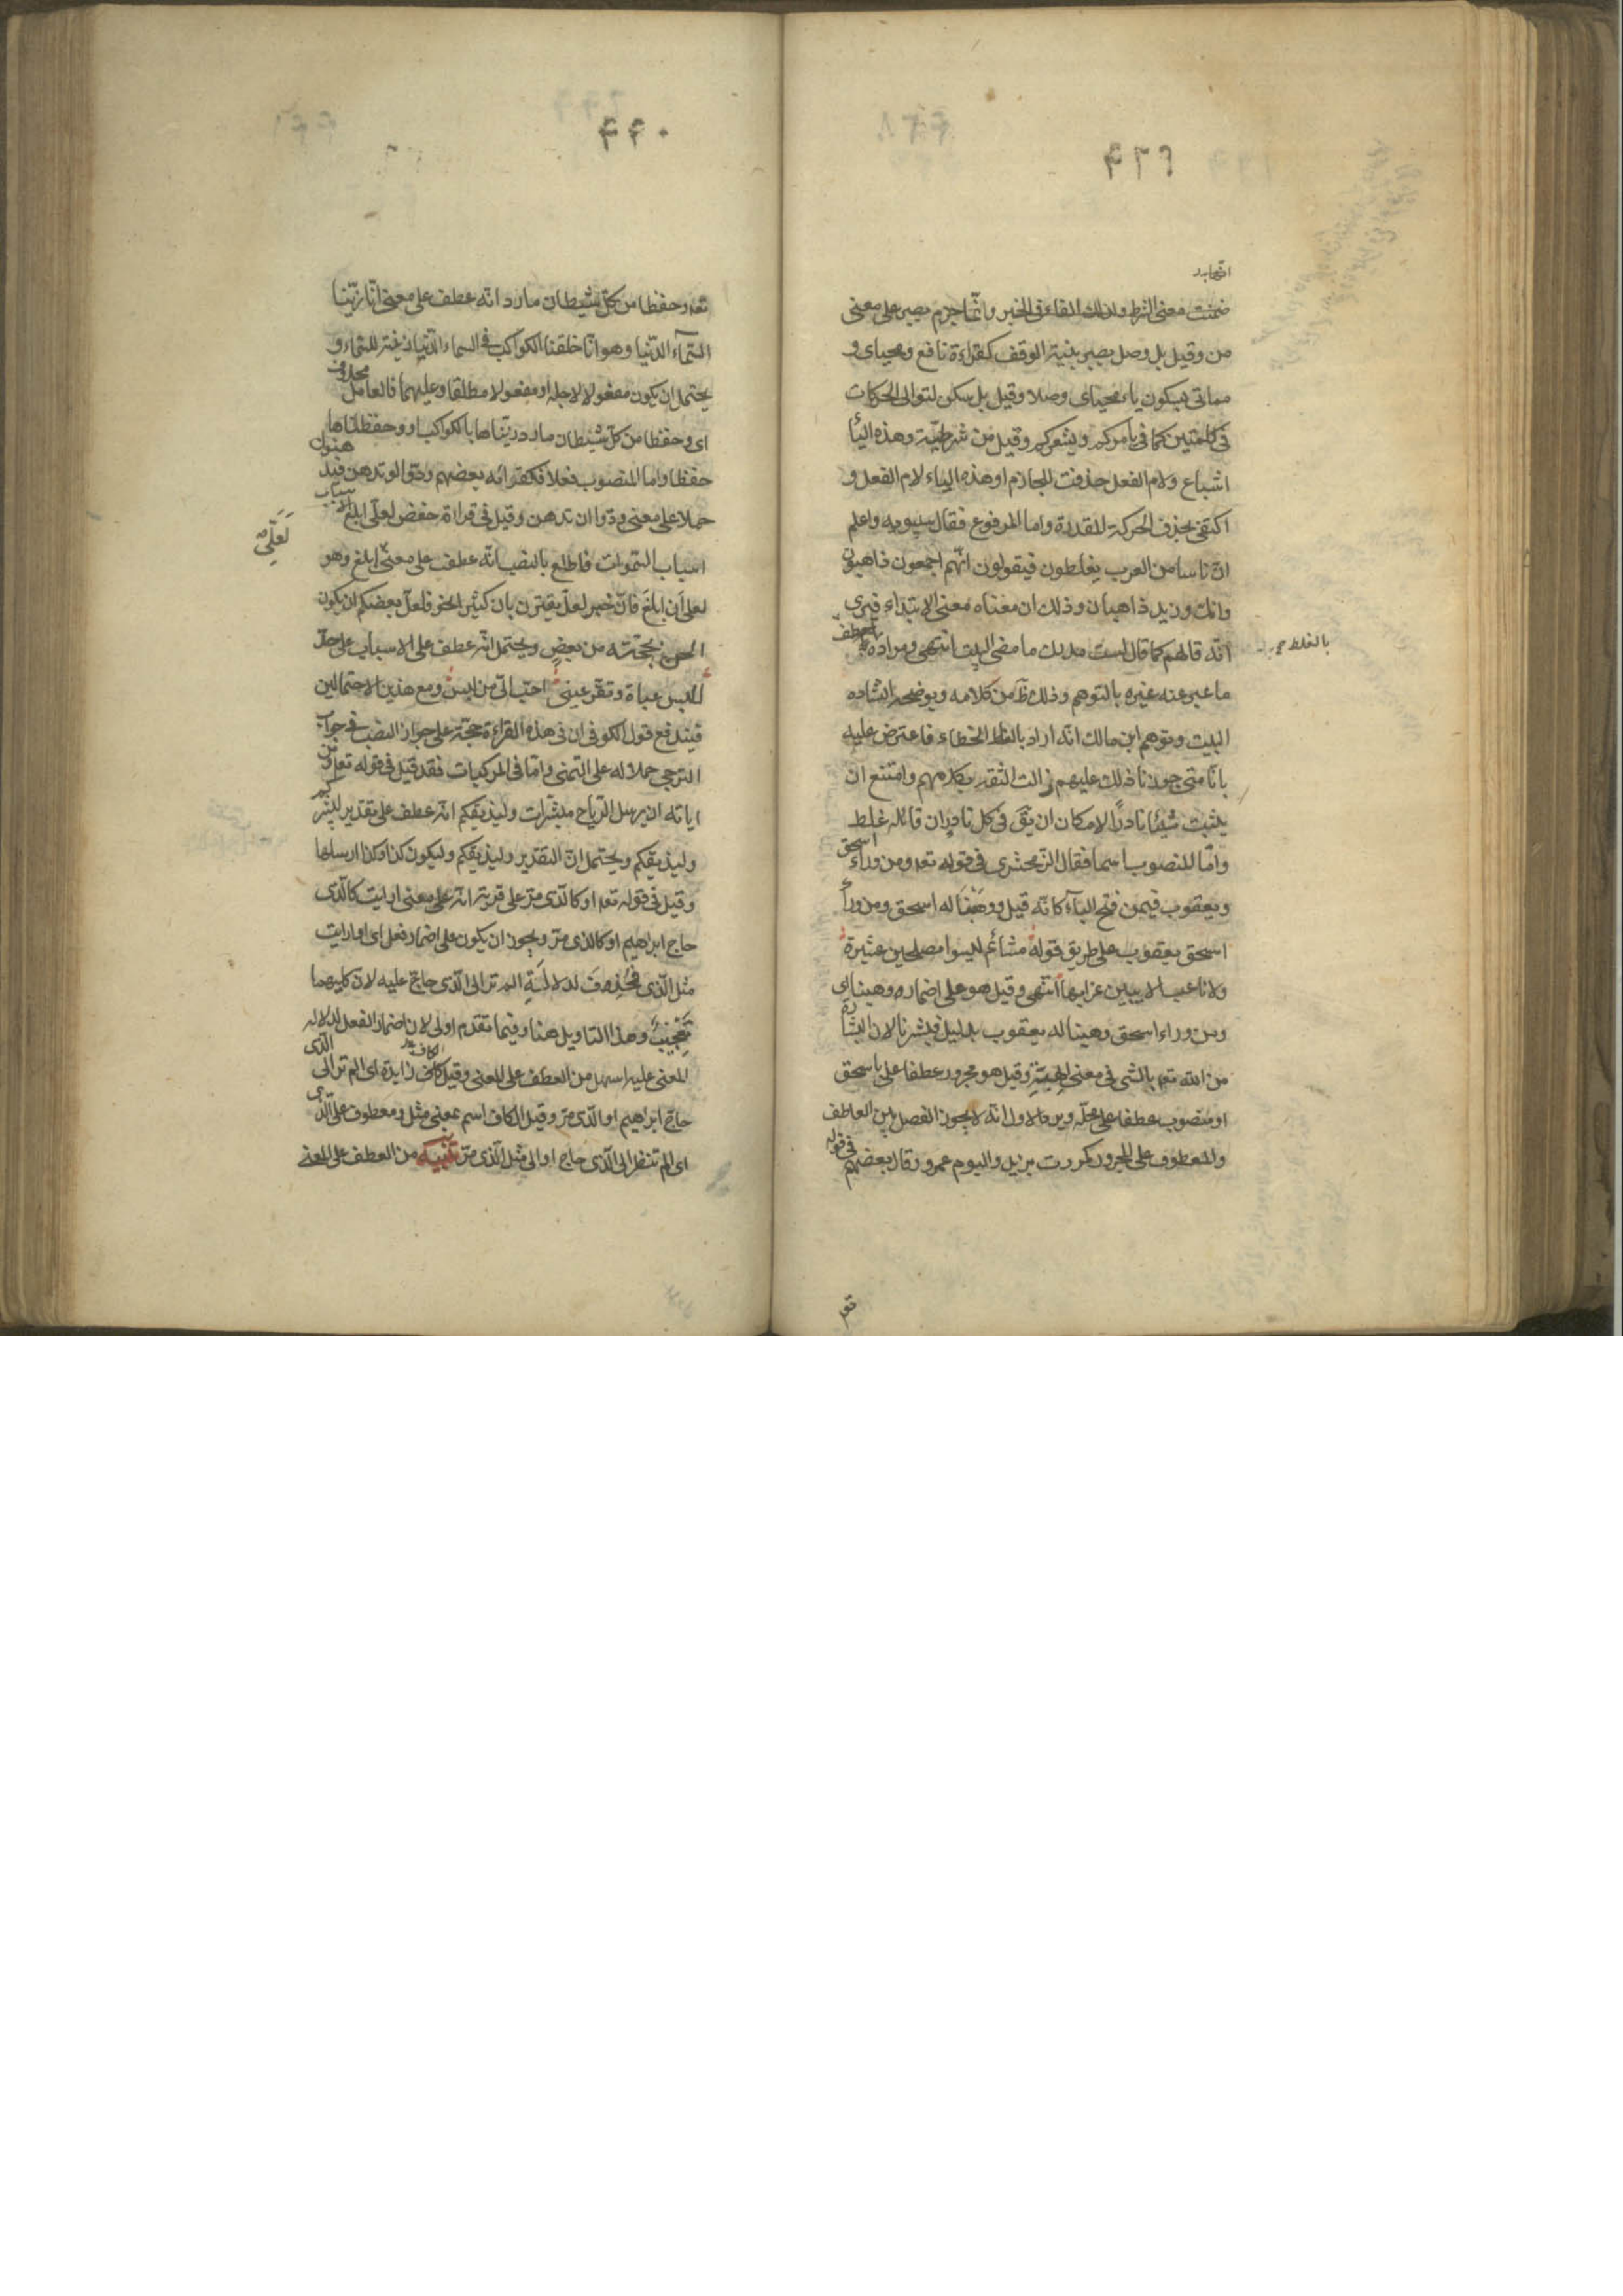 ۴۳۹
ضمنت معنى الشرط ولذلك الفاء فى الخبر وانّما جزم يصبر على معنى
من وقيل بل وصل يصبر بنية الوقف كقراءة نافع ومحياى و
مماتى بسكون ياء محياى وصلا وقيل بل سكن لتوالى الحركات
فى كلمتين كما فى يأمركم ويشعركم وقيل من شرطيّة وهذه اليأ
اشباع ولام الفعل حذفت للجازم او هذه الياء لام الفعل و
اكتفى بحذف الحركة المقدرة واما المرفوع فقال سيبويه واعلم
انّ ناسا من العرب يغلطون فيقولون انّهم اجمعون ذاهبون
وانك وزيد ذاهبان وذلك ان معناه معنى الابتداء فيرى
انّه قال هم كما قال لست مدرك ما مضى البيت انتهى ومراده
بالغلط
ما عبر عنه غيره بالتوهم وذلك ظ من كلامه ويوضحه انشاده
البيت وتوهم ابن مالك انّه اراد بالغلط الخطاء فاعترض عليه
بانّا متى جوزنا ذلك عليهم زالت الثقة بكلامهم وامتنع ان
يثبت شيئا نادرًا لامكان ان يقى فى كل نادر ان قائله غلط
وامّا المنصوب اسما فقال الزمخشرى فى قوله تعه ومن وراء اسحق
ويعقوب فيمن فتح الباء كانّه قيل ووهبنا له اسحق ومن وراء
اسحق يعقوب على طريق قوله مشائم ليسوا مصلحين عشيرة
ولا ناعب الا ببين غرابها انتهى وقيل هو على اضمار وهبنا اى
ومن وراء اسحق وهبنا له يعقوب بدليل فبشرنا لان البشارة
من الله تعه بالشى فى معنى الهبة وقيل هو مجرور عطفا على باسحق
او منصوب عطفا على محله ويرد الاول انّه لا يجوز الفصل بين العاطف
والمعطوف على المجرور كمررت بزيد واليوم عمرو وقال بعضهم فى قوله
تعه
۴۴۰
تعه وحفظا من كلّ شيطان مارد انّه عطف على معنى انّا زيّنا
السّماء الدّنيا وهو انّا خلقنا الكواكب فى السماء الدّنيا زينة للسّماء و
يحتمل ان يكون مفعولا لاجله او مفعولا مطلقا وعليهما فالعامل محذوف
اى وحفظا من كلّ شيطان مارد زيناها بالكواكب او وحفظناها
حفظا واما المنصوب فعلا فكقرائه بعضهم ودّوا لو تدهن فيدهنوا
حملا على معنى ودّوا ان تدهن وقيل فى قراءة حفص لعلّى ابلغ الاسباب
لَعَلّى
اسباب السّموات فاطلع بالنصب انّه عطف على معنى ابلغ وهو
لعلى أن ابلغ فانّ خبر لعلّ يقترن بان كثيرًا نحو فلعلّ بعضكم ان يكون
الحن بحجّته من بعض ويحتمل انّه عطف على الاسباب على حدّ
للبس عباة وتقرّ عينى احبّ الىّ من لبس ومع هذين الاحتمالين
فيندفع قول الكوفى ان فى هذه القراءة حجّة على جواز النصب فى جواب
الترجى حملا له على التمنى وامّا فى المركبات فقد قيل فى قوله تعه ومن
اياته ان يرسل الرّياح مبشّرات وليذيقكم انّه عطف على تقدير ليبشركم
وليذيقكم ويحتمل انّ التقدير وليذيقكم وليكون كذا وكذا ارسلها
وقيل فى قوله تعه او كالّذى مرّ على قرية انّه على معنى ارايت كالّذى
حاج ابراهيم او كالذى مرّ ويجوز ان يكون على اضمار فعل اى او ارايت
مثل الّذى فحُذِفَ لدلالَةِ الم تر الى الّذى حاج عليه لان كليهما
تَعْجيبٌ وهذا التاويل هنا وفيما تقدم اولى لان اضمار الفعل لدلاله
المعنى عليه اسهل من العطف على المعنى وقيل كاف زايدة اى الم تر الى الّذى
حاجّ ابراهيم او الّذى مرّ وقيل الكاف اسم بمعنى مثل ومعطوف على الّذى
اى الم تنظر الى الّذى حاج او الى مثل الّذى مرّ تنبيه من العطف على المعنى